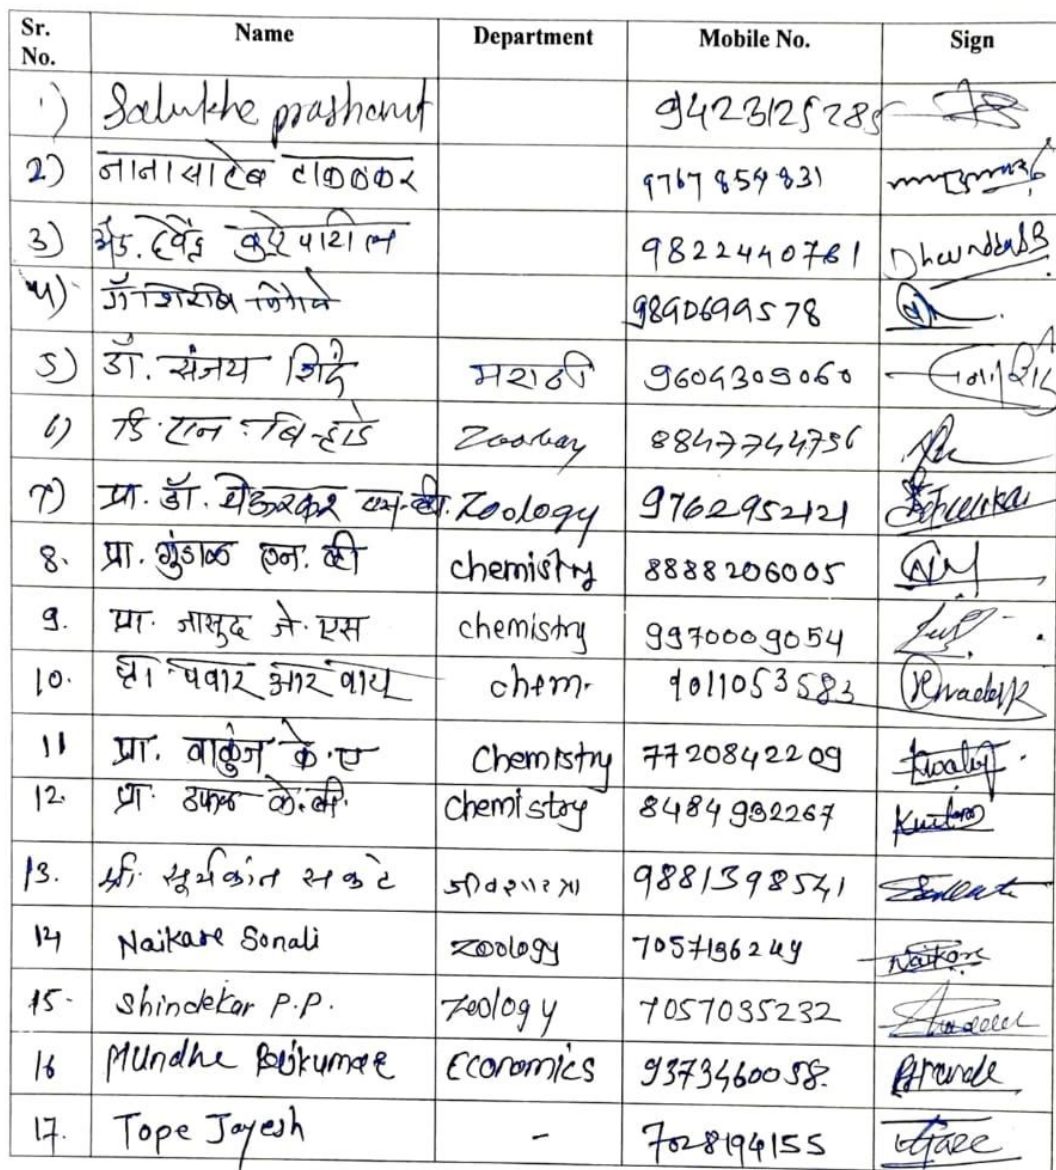 Sr. No. Name Department Mobile No. Sign
1) Salukhe prashant 9423125285
2) नानासाहेब टाकळकर 9767854831
3) ॲड. देवेंद्र बुट्टे पाटील 9822440761
4) 9890699578
5) डॉ. संजय शिंदे मराठी 9604309060
6) डि. एन. बि-हाडे Zoology 8847744756
7) प्रा. डॉ. Zoology 9762952121
8. प्रा. गुंडाळ एन. व्ही chemistry 8888206005
9. प्रा. जासुद जे. एस chemistry 9970009054
10. प्रा पवार आर वाय chem. 9011053583
11 प्रा. वाळुंज के. ए Chemistry 7720842209
12. प्रा. डफळ के. बी. Chemistry 8484992267
13. श्री. सूर्यकांत सकटे जीवशास्त्र 9881398541
14 Naikare Sonali zoology 7057196249
15. Shindekar P.P. zoology 7057035232
16 Mundhe Rajkumar Economics 9373460058.
17. Tope Jayesh - 7028194155